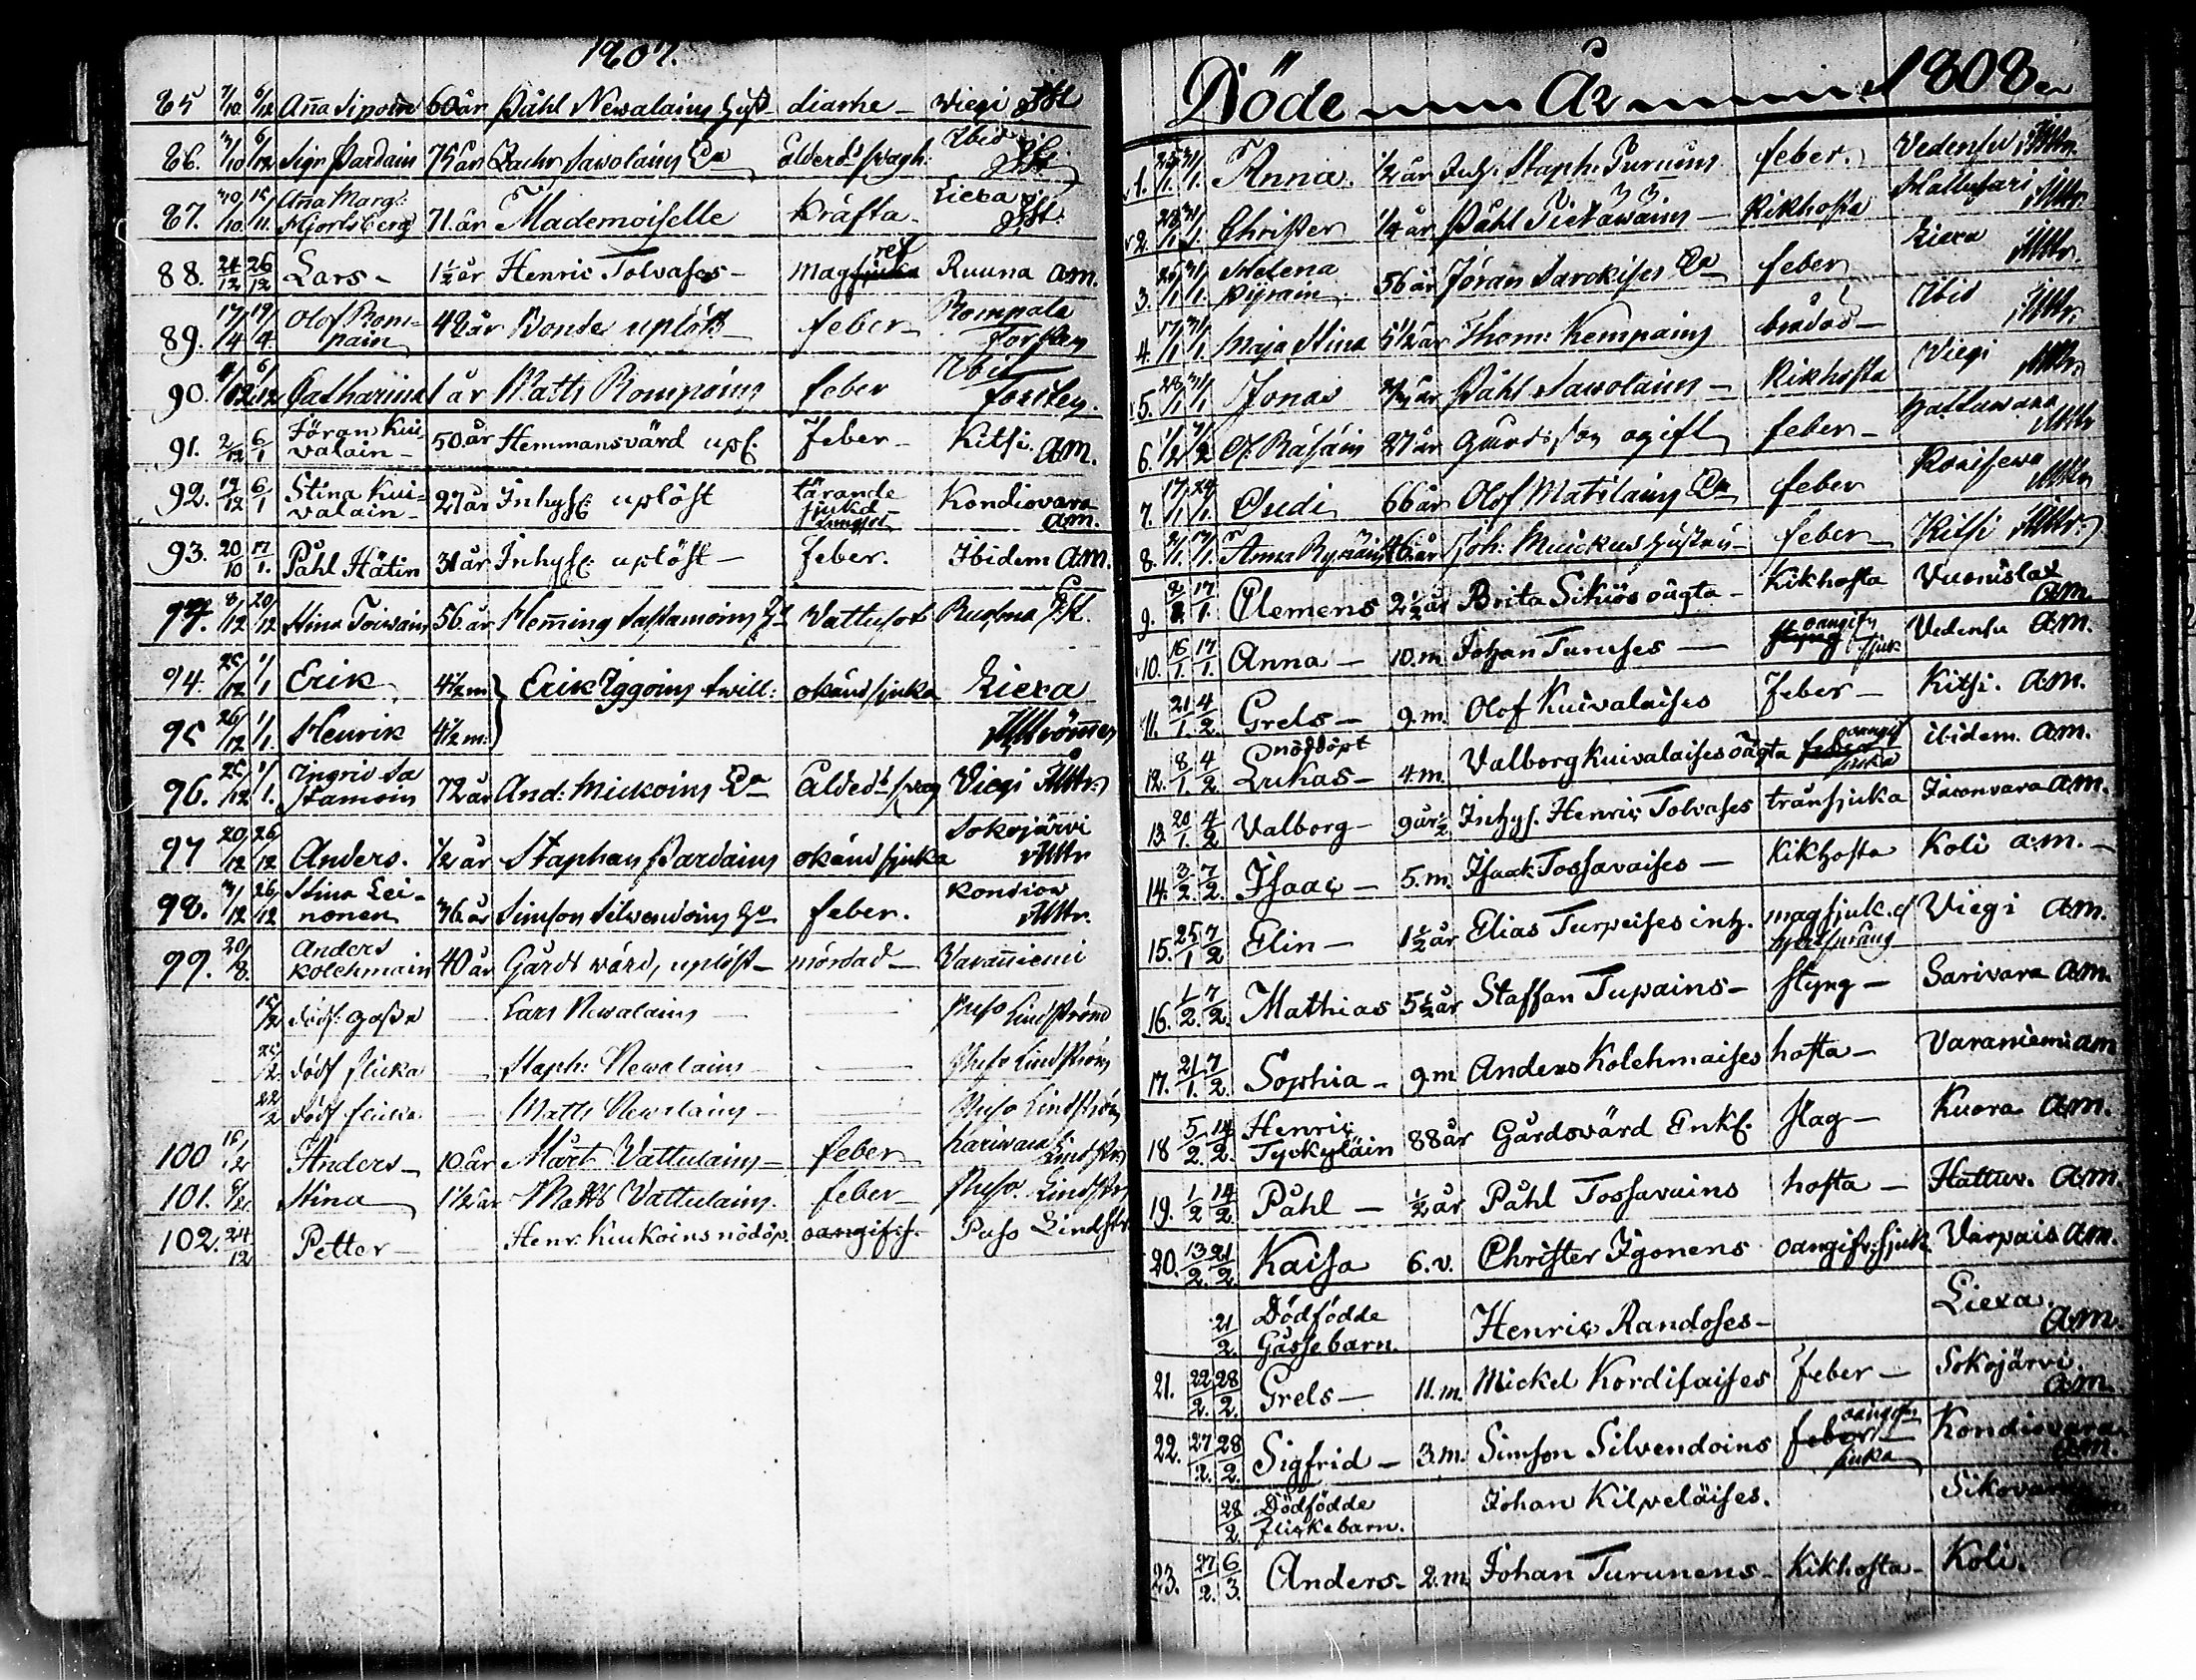 1807.
85 7/10 6/12 Aña Sipoin 60 år Påhl Newalains hust diarhe Wiegi
86. 3/10 6/12 Sigr Pardain 75 år Zachr Sawolains Ea ålderd: swagh: Ibid
87. 30/10 15/11. Aña Marg: Hjortsberg 71. år Mademoiselle kräfta Liexa
88. 24/12 26/12 Lars 1½ år Henric Tolvases mag ref Ruuna am.
89. 17/4 19/4. Olof Rom=pain 42 år Bonde uplöst feber Rompala Forsten
90. 4/12 6/12 Catharina 1 år Matts Rompoins feber Ibid Forsten.
91. 2/12 6/1 Jöran Kui=valain 50 år Hemmansvärd upl. feber Kitsi. am.
92. 12/12 6/1 Stina Kui=valain 27 år Inhyse uplöst tärande sjukd Kondiovara am.
93. 20/10 17/1. Påhl Hätin 31 år Inhyse uplöst feber. Ibidem am.
8/12 20/12 Stina Toiwain 56 år Hem̃ing Sastamoins Wattusot Rusma
94. 25/12 1/1 Erik 4½ m. Erik Iggoins twill: okänd sjuka Liexa
95 26/12 1/1 Henrik 4½ m:
96. 25/12 1/1. Ingrid Sastamoin 72 år And: Mickoins Ea Ålderd: swag Viegi
97 20/12 26/12 Anders. ½ år Staphan Pardains okänd sjuka Sokojärvi
98. 3/12 26/12 Stina Leinonen 36 år Simson Silwendoins feber. Kondiow
99. 20/8. Anders Kolehmain 40 år Gårds wärd, uplöst mördad Varañiemi
15/12 dödf: gosse Lars Newalains Puso Lindström
25/12 dödf flicka Staph: Newalains Puso Lindström
22/2 dödf flicka Matts Newalains Puso Lindström
100 16/12 Anders 10. år Mårt Vattulains feber Lindstr
101. 6/12 Stina 1½ år Matts Vattulains. feber Puso. Lindstr
102. 24/12 Petter Henr. Kiukoins nödöp. oangifs. Puso Lindstr
Döde År 1808
1. 25/1. 31/1. Anna. ½ år Inhs. Staph. Turuins feber. Vedensu
2. 28/1 31/1. Christer ¼ år Påhl Pietäwäins Kikhosta Hattusari
3. 25/1 31/1. Helena Pyrain 56 år Jöran Sarokises Ea feber Liexa
4. 17/1 31/1 Maja Stina 5½ år Thom: Kempains brådöd Ibid
5. 28/1 31/1 Jonas år Påhl Sawolains Kikhosta Viegi
6. 1/2 7/2 Ol. Räsäin 27 år Gårds, son ogift feber Hattuwara
7. 17/1 24/1 Oudi 66 år Olof Matilains Ea feber
8. 2/1 17/1. Anna år Joh: Muickus hustru feber Kitsi
9. 2/1. 17/1. Clemens 2½ år Brita Sikiös oägta Kikhosta Vuonislax am.
10. 16/1. 17/1. Anna 10. m Johan Turuses oangifn sjuk Vedensu am.
11. 21/1. 4/2. Grels 9. m. Olof Kuivalaises feber Kitsi. am.
12. 8/1. 4/2. nöddöpt Lukas 4 m. Valborg Kuivalaises oägta oangif sjuka ibidem. am.
13. 20/1. 4/2 Valborg 9 år ½ Inhys. Henric Tolvases trånsjuka Jäconvara am.
14. 3/2. 7/2. Isaac 5. m. Isaak Tossavaises Kikhosta Koli am.
15. 25/1 7/2 Elin 1½ år Elias Turpeises inh. magsjuk. Viegi am.
16. 1/2. 7/2. Mathias 5½ år Staffan Tupains styng Sarivara am.
17. 21/1. 7/2. Sophia 9. m Anders Kolehmaises hosta Varaniemi am
18 5/2. 14/2. Henric Tyckyläin 88 år Gårdsvärd Enkl. slag Kuora am.
19. 1/2 14/2 Påhl ½ år Påhl Tossavains hosta Hattuv. am.
20. 13/2. 21/2 Kaisa 6. v. Christer Igonens oangifv. sjuk Varpais am.
21/2. Dödfödde Gåssebarn. Henric Randoses Liexa. am.
21. 22/2. 28/2. Grels 11. m. Mickel Kordilaises feber Sokojärvi. am.
22. 27/2. 28/2. Sigfrid 3. m. Simson Silvendoins oangifn sjuka Kondiovara am.
28/2. Dödfödde flickebarn. Johan Kilpeläises. Sikovara
23. 27/2. 6/3. Anders 2. m Johan Turunens Kikhosta Koli.